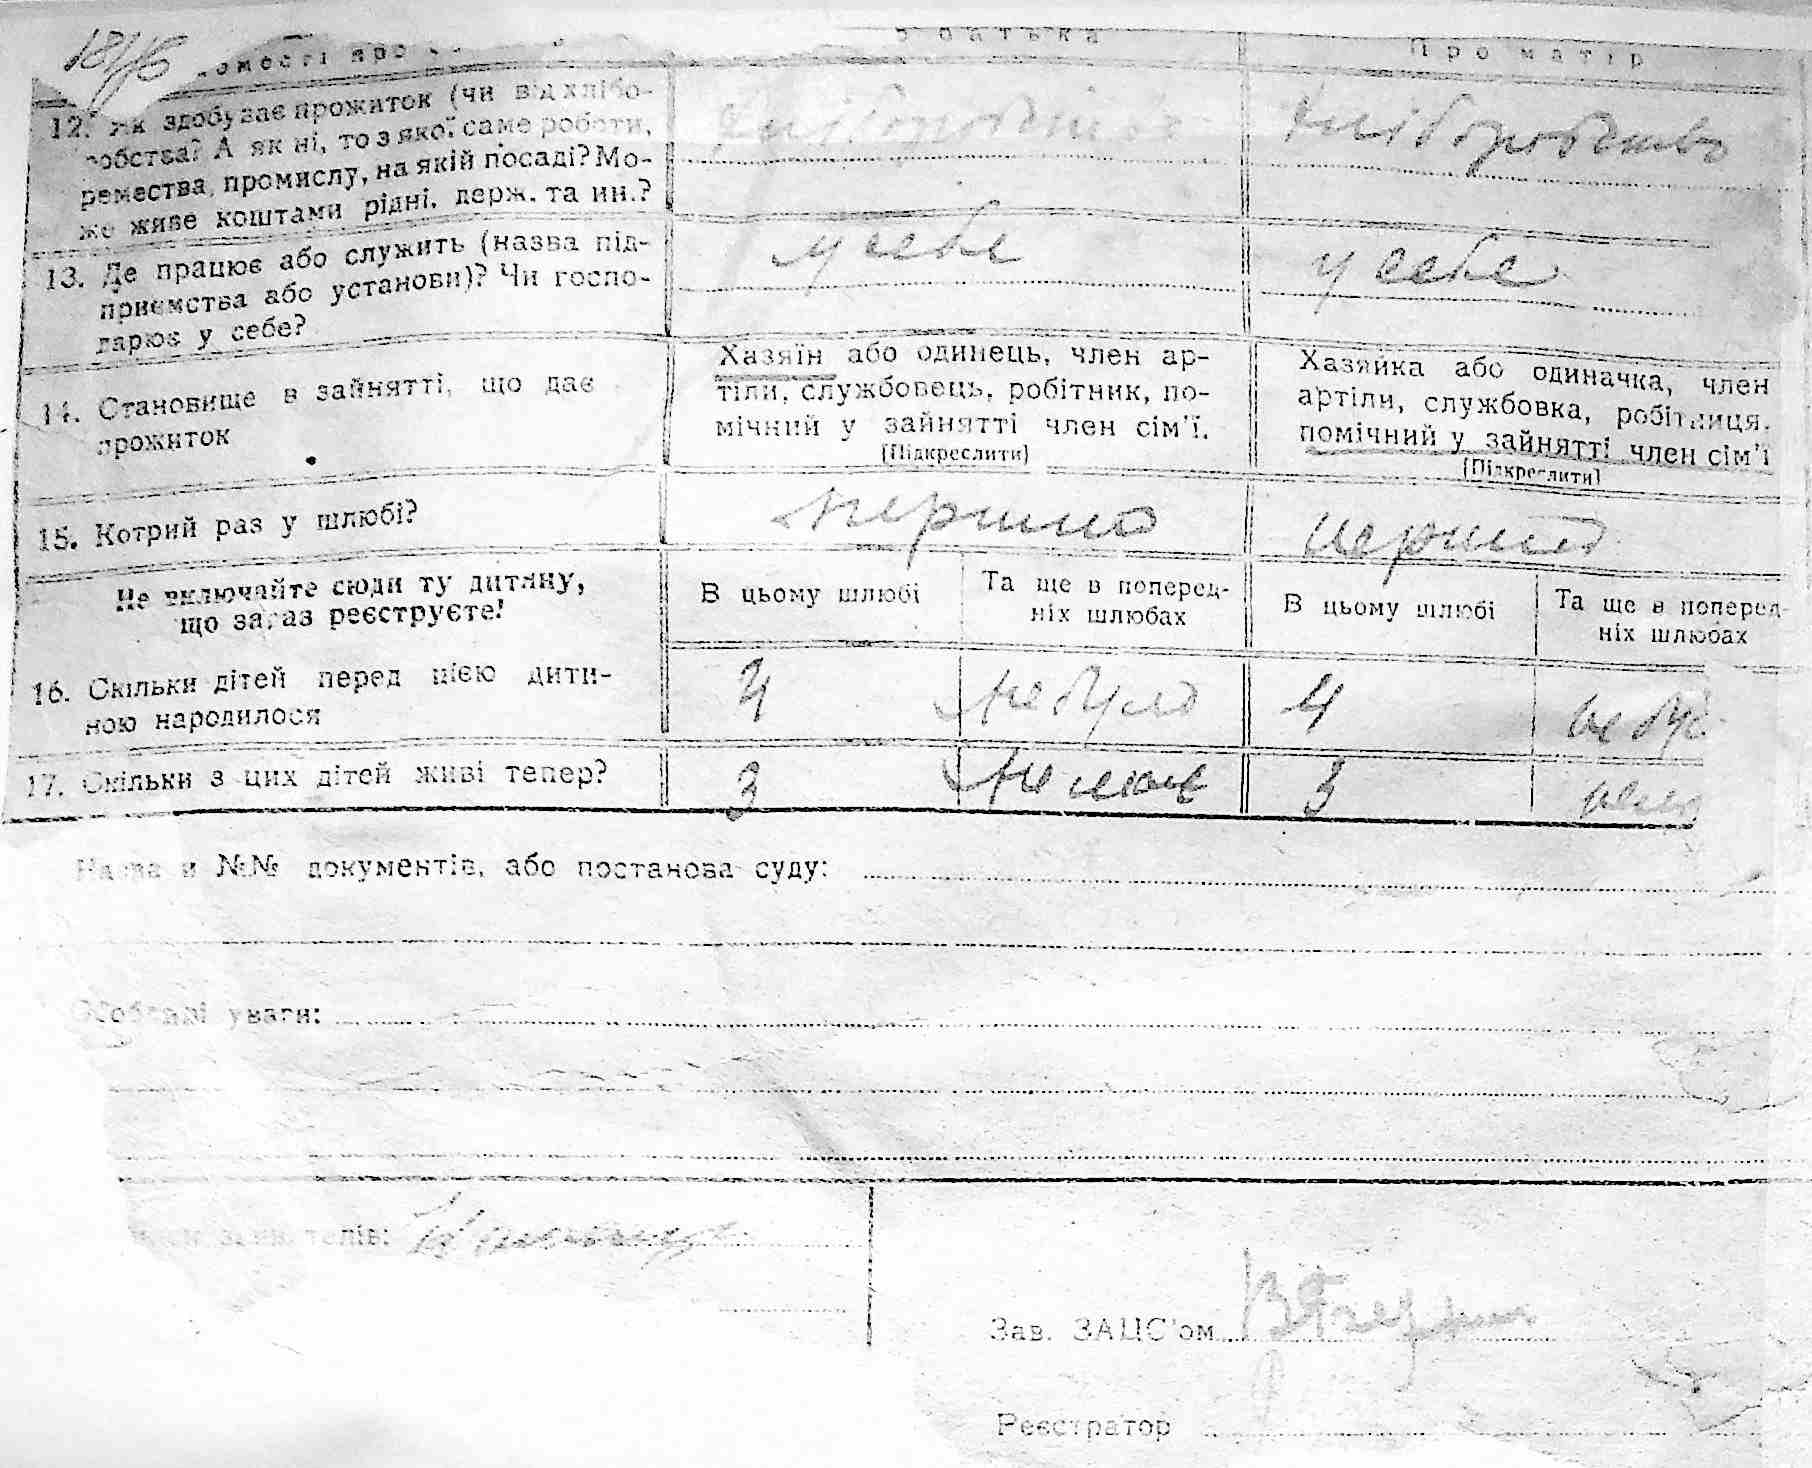 18/16
про батька
Про матір
12. Як здобуває прожиток (чи від хлібо-
робства? А як ні, то з якої саме роботи,
ремества, промислу, на якій посаді? Мо-
же живе коштами рідні, держ. та ин.?
хліборобство
хліборобство
13. Де працює або служить (назва під-
приємства або установи)? Чи госпо-
дарює у себе?
у себе
у себе
14. Становище в зайнятті, що дає
прожиток
Хазяїн або одинець, член ар-
тіли, службовець, робітник, по-
мічний у зайнятті член сім'ї.
(Підкреслити)
Хазяйка або одиначка, член
артіли, службовка, робітниця.
помічний у зайнятті член сім'ї
(Підкреслити)
15. Котрий раз у шлюбі?
перший
перший
Не включайте сюди ту дитину,
що зараз реєструєте!
В цьому шлюбі
Та ще в поперед-
ніх шлюбах
В цьому шлюбі
Та ще в поперед-
ніх шлюбах
16. Скільки дітей перед цією дити-
ною народилося
4
не було
4
не бу
17. Скільки з цих дітей живі тепер?
3
немає
3
Назва й №№ документів, або постанова суду:
Особливі уваги:
Зав. ЗАЦС'ом
Реєстратор